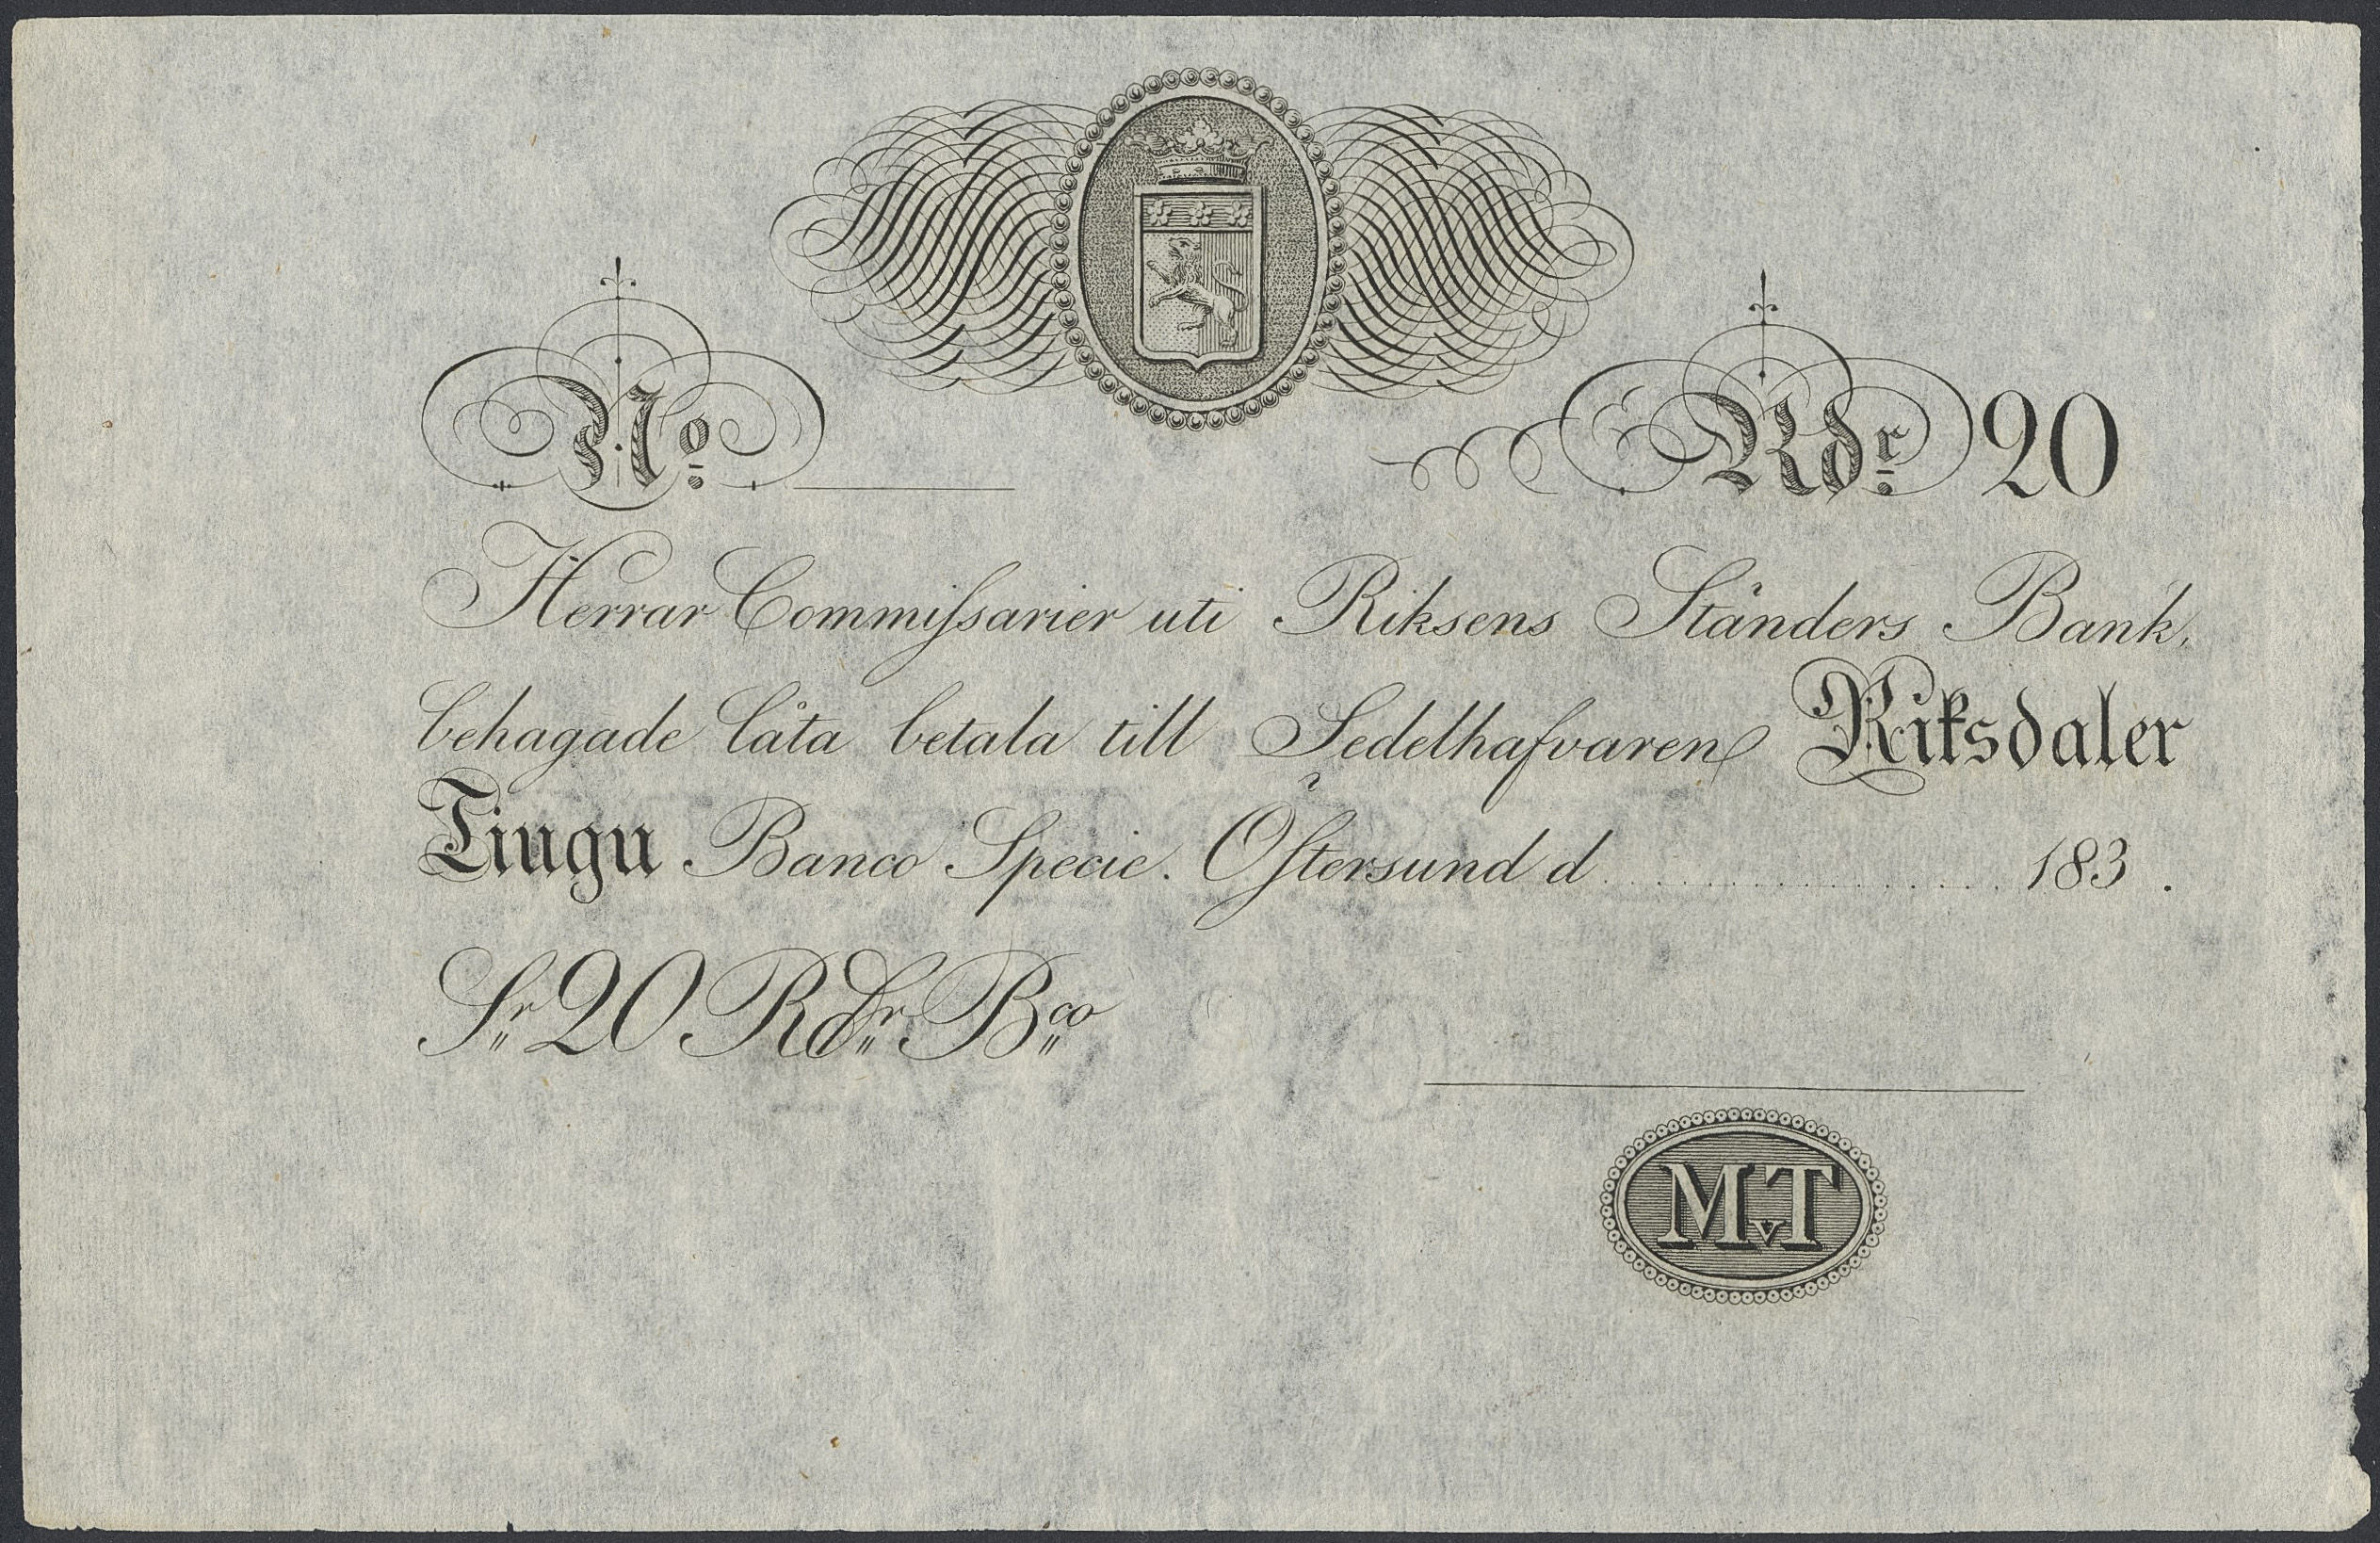 No.
Rdr. 20
Herrar Commissarier uti Riksens Ständers Bank,
behagade låta betala till Sedelhafvaren Riksdaler
Tiugu Banco Specie. Östersund d ................. 183 .
Sr 20 RdSr Bco
MvT